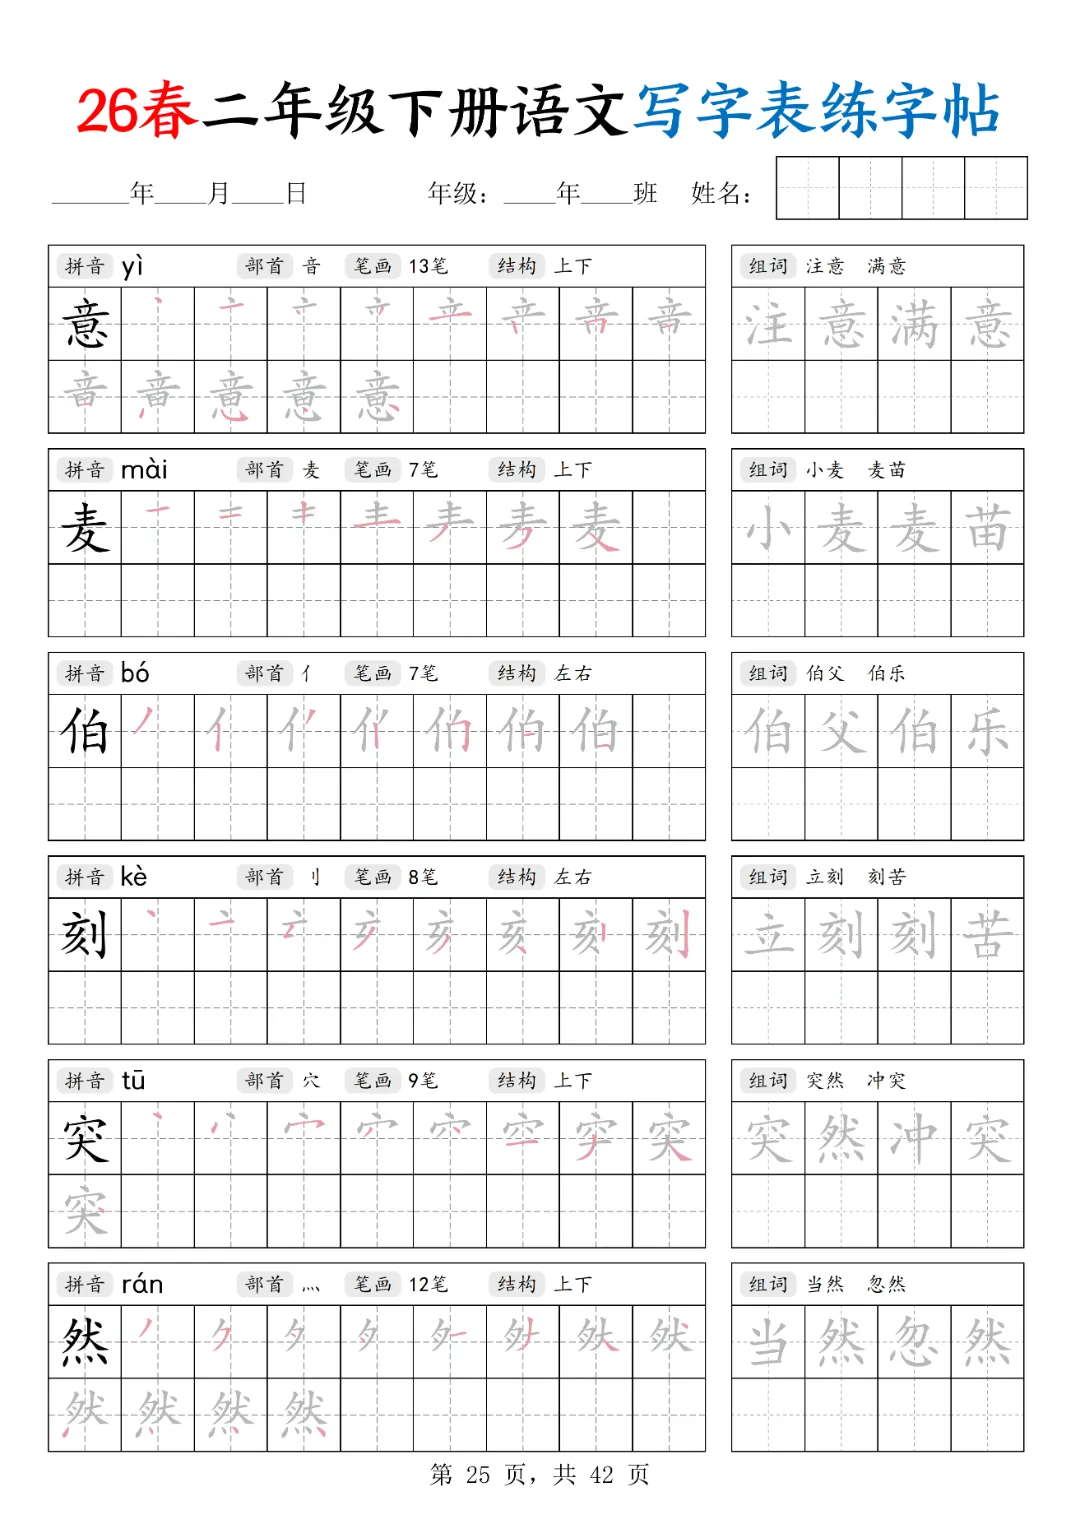 26春二年级下册语文写字表练字帖
______年____月____日 年级：____年____班 姓名：
拼音 yì 部首 音 笔画 13笔 结构 上下 组词 注意 满意
意 注意满意
拼音 mài 部首 麦 笔画 7笔 结构 上下 组词 小麦 麦苗
麦 小麦麦苗
拼音 bó 部首 亻 笔画 7笔 结构 左右 组词 伯父 伯乐
伯 伯父伯乐
拼音 kè 部首 刂 笔画 8笔 结构 左右 组词 立刻 刻苦
刻 立刻刻苦
拼音 tū 部首 穴 笔画 9笔 结构 上下 组词 突然 冲突
突 突然冲突
拼音 rán 部首 灬 笔画 12笔 结构 上下 组词 当然 忽然
然 当然忽然
第 25 页，共 42 页